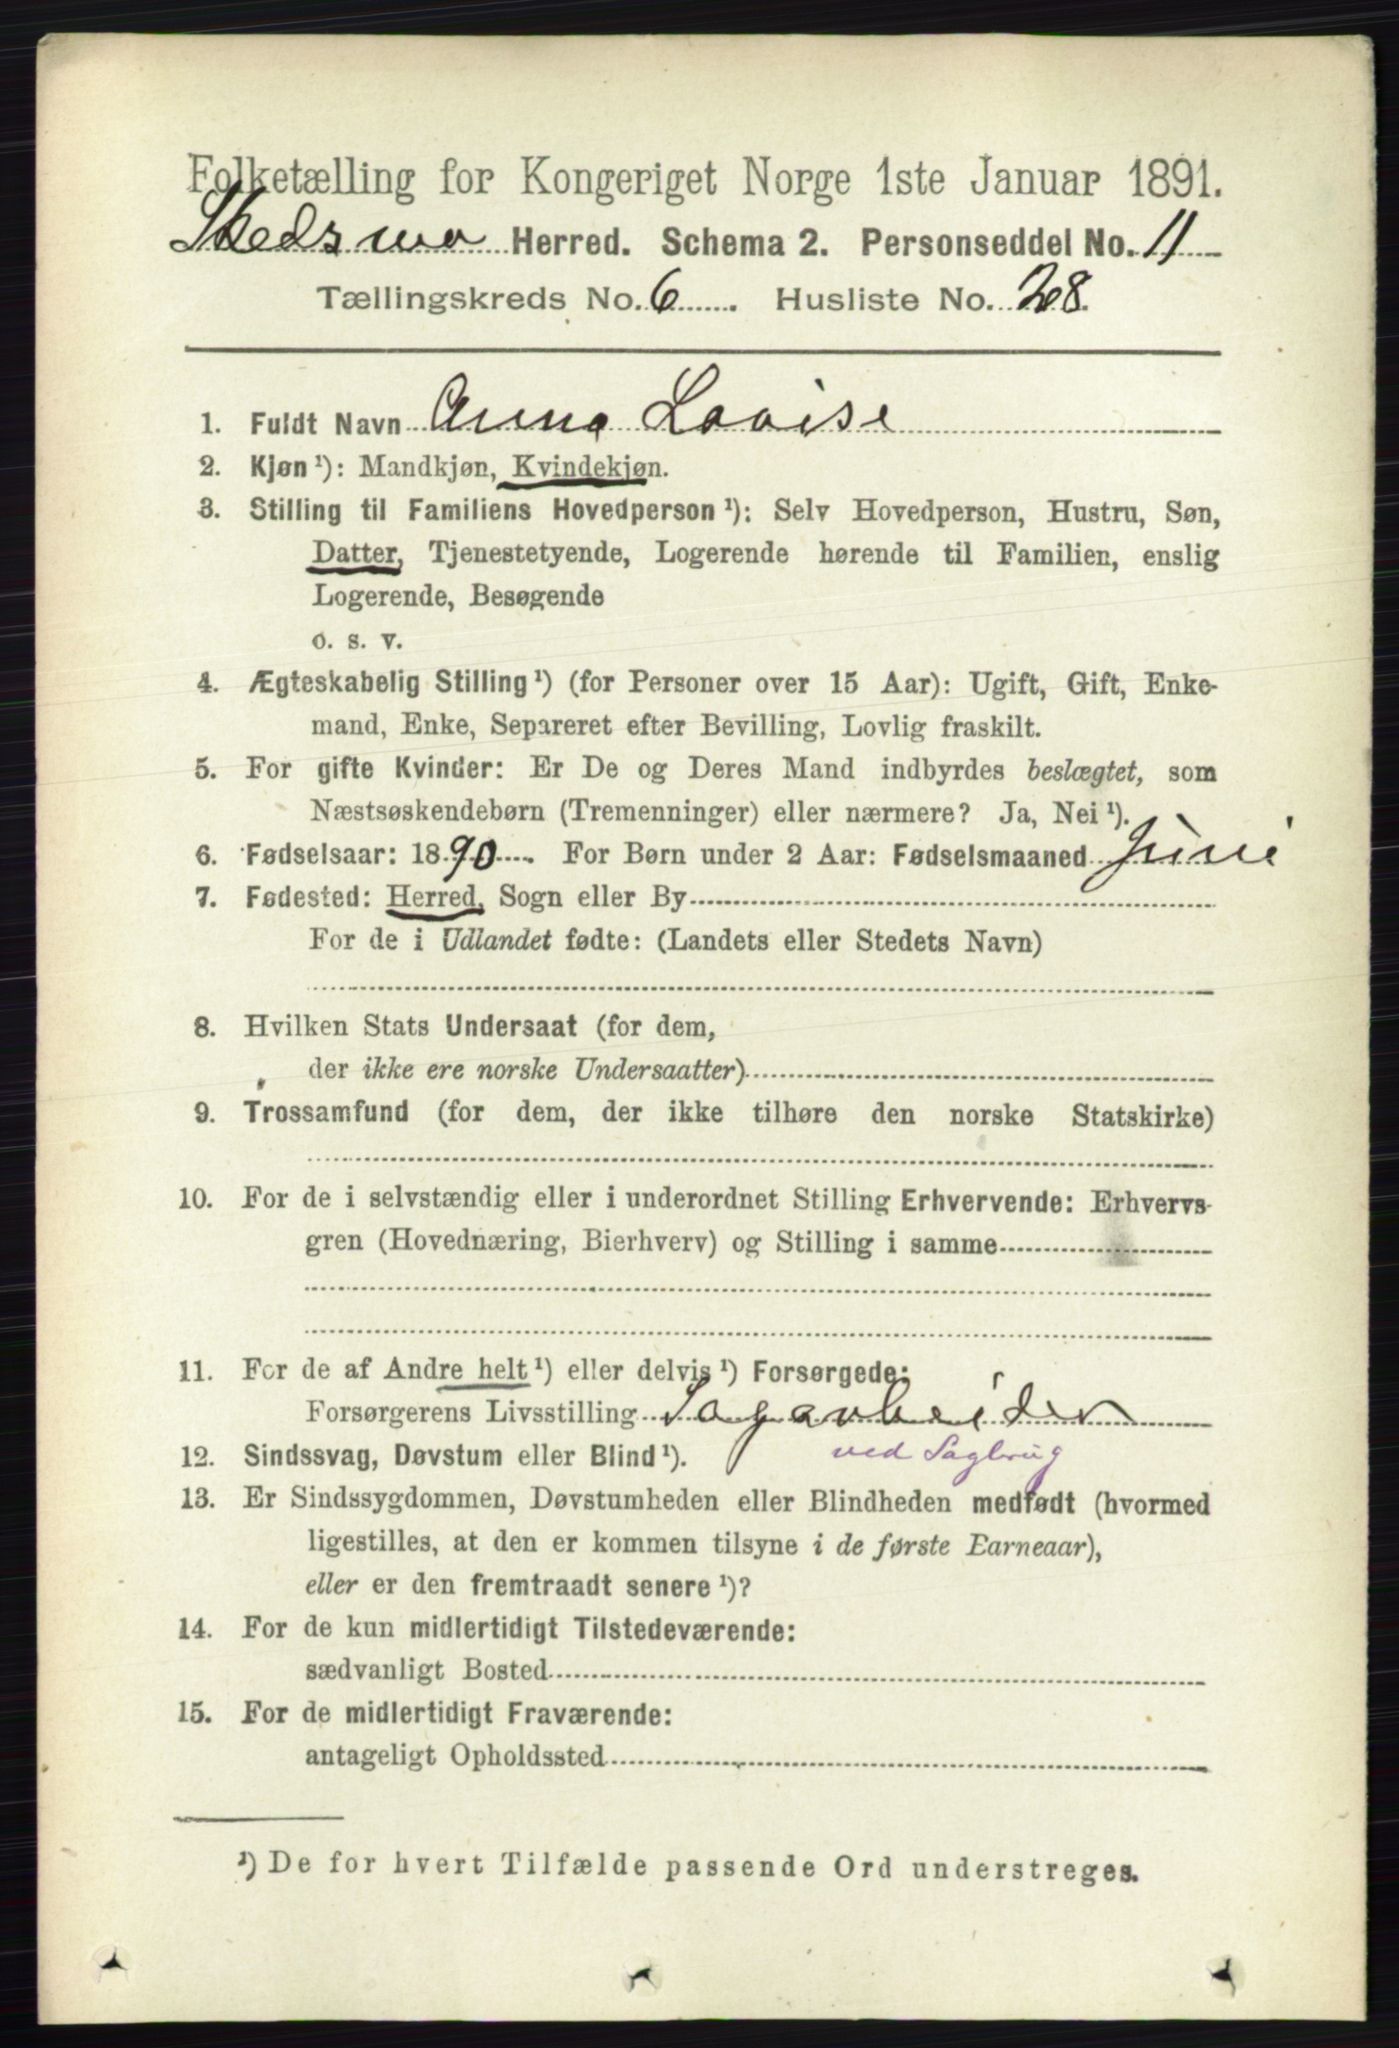 Folketælling for Kongeriget Norge 1ste Januar 1891.
Skedsmo Herred. Schema 2. Personseddel No. 11
Tællingskreds No. 6. Husliste No. 28.
1. Fuldt Navn Anna Lovise
2. Kjøn ¹): Mandkjøn, Kvindekjøn.
3. Stilling til Familiens Hovedperson ¹): Selv Hovedperson, Hustru, Søn,
Datter, Tjenestetyende, Logerende hørende til Familien, enslig
Logerende, Besøgende
o. s. v.
4. Ægteskabelig Stilling ¹) (for Personer over 15 Aar): Ugift, Gift, Enke-
mand, Enke, Separeret efter Bevilling, Lovlig fraskilt.
5. For gifte Kvinder: Er De og Deres Mand indbyrdes beslægtet, som
Næstsøskendebørn (Tremenninger) eller nærmere? Ja, Nei ¹).
6. Fødselsaar: 1890. For Børn under 2 Aar: Fødselsmaaned Juni
7. Fødested: Herred, Sogn eller By
For de i Udlandet fødte: (Landets eller Stedets Navn)
8. Hvilken Stats Undersaat (for dem,
der ikke ere norske Undersaatter)
9. Trossamfund (for dem, der ikke tilhøre den norske Statskirke)
10. For de i selvstændig eller i underordnet Stilling Erhvervende: Erhvervs-
gren (Hovednæring, Bierhverv) og Stilling i samme
11. For de af Andre helt ¹) eller delvis ¹) Forsørgede:
Forsørgerens Livsstilling Sagarbeider
ved Sagbrug
12. Sindssvag, Døvstum eller Blind ¹).
13. Er Sindssygdommen, Døvstumheden eller Blindheden medfødt (hvormed
ligestilles, at den er kommen tilsyne i de første Barneaar),
eller er den fremtraadt senere ¹)?
14. For de kun midlertidigt Tilstedeværende:
sædvanligt Bosted
15. For de midlertidigt Fraværende:
antageligt Opholdssted
¹) De for hvert Tilfælde passende Ord understreges.